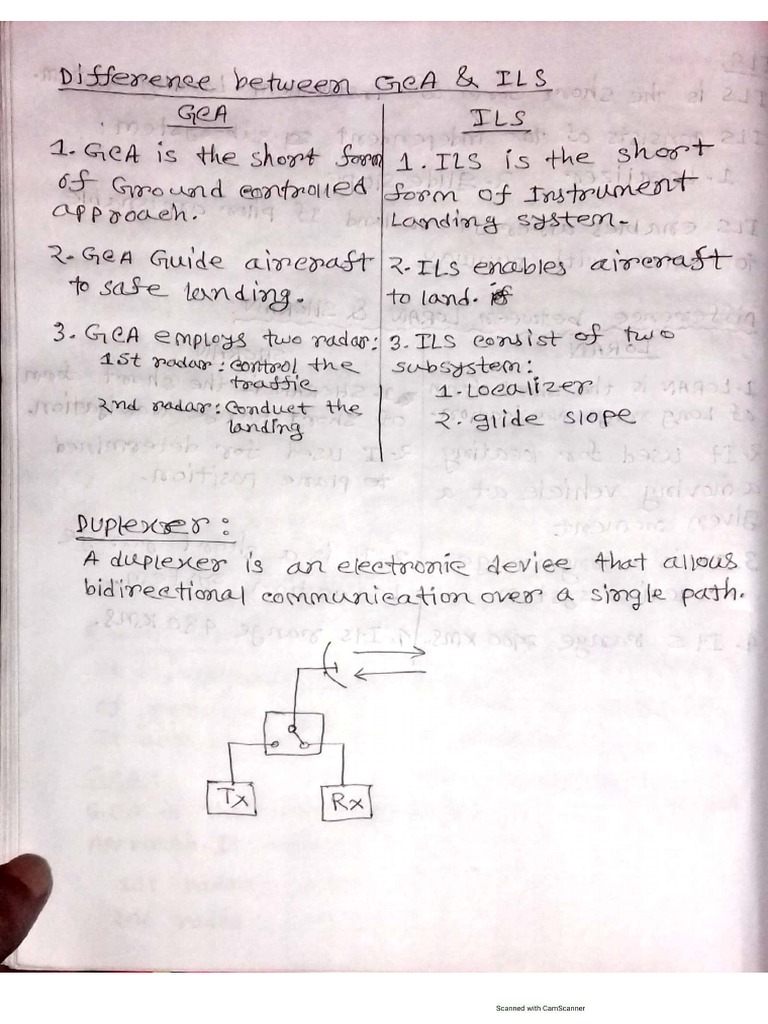 Difference between GCA & ILS
GCA
1. GCA is the short form
of Ground controlled
approach.
2. GCA Guide aircraft
to safe landing.
3. GCA employs two radar:
1st radar: control the
traffic
2nd radar: Conduct the
landing
ILS
1. ILS is the short
form of Instrument
Landing system.
2. ILS enables aircraft
to land.
3. ILS consist of two
subsystem:
1. Localizer
2. glide slope
Duplexer:
A duplexer is an electronic device that allows
bidirectional communication over a single path.
Tx
Rx
Scanned with CamScanner